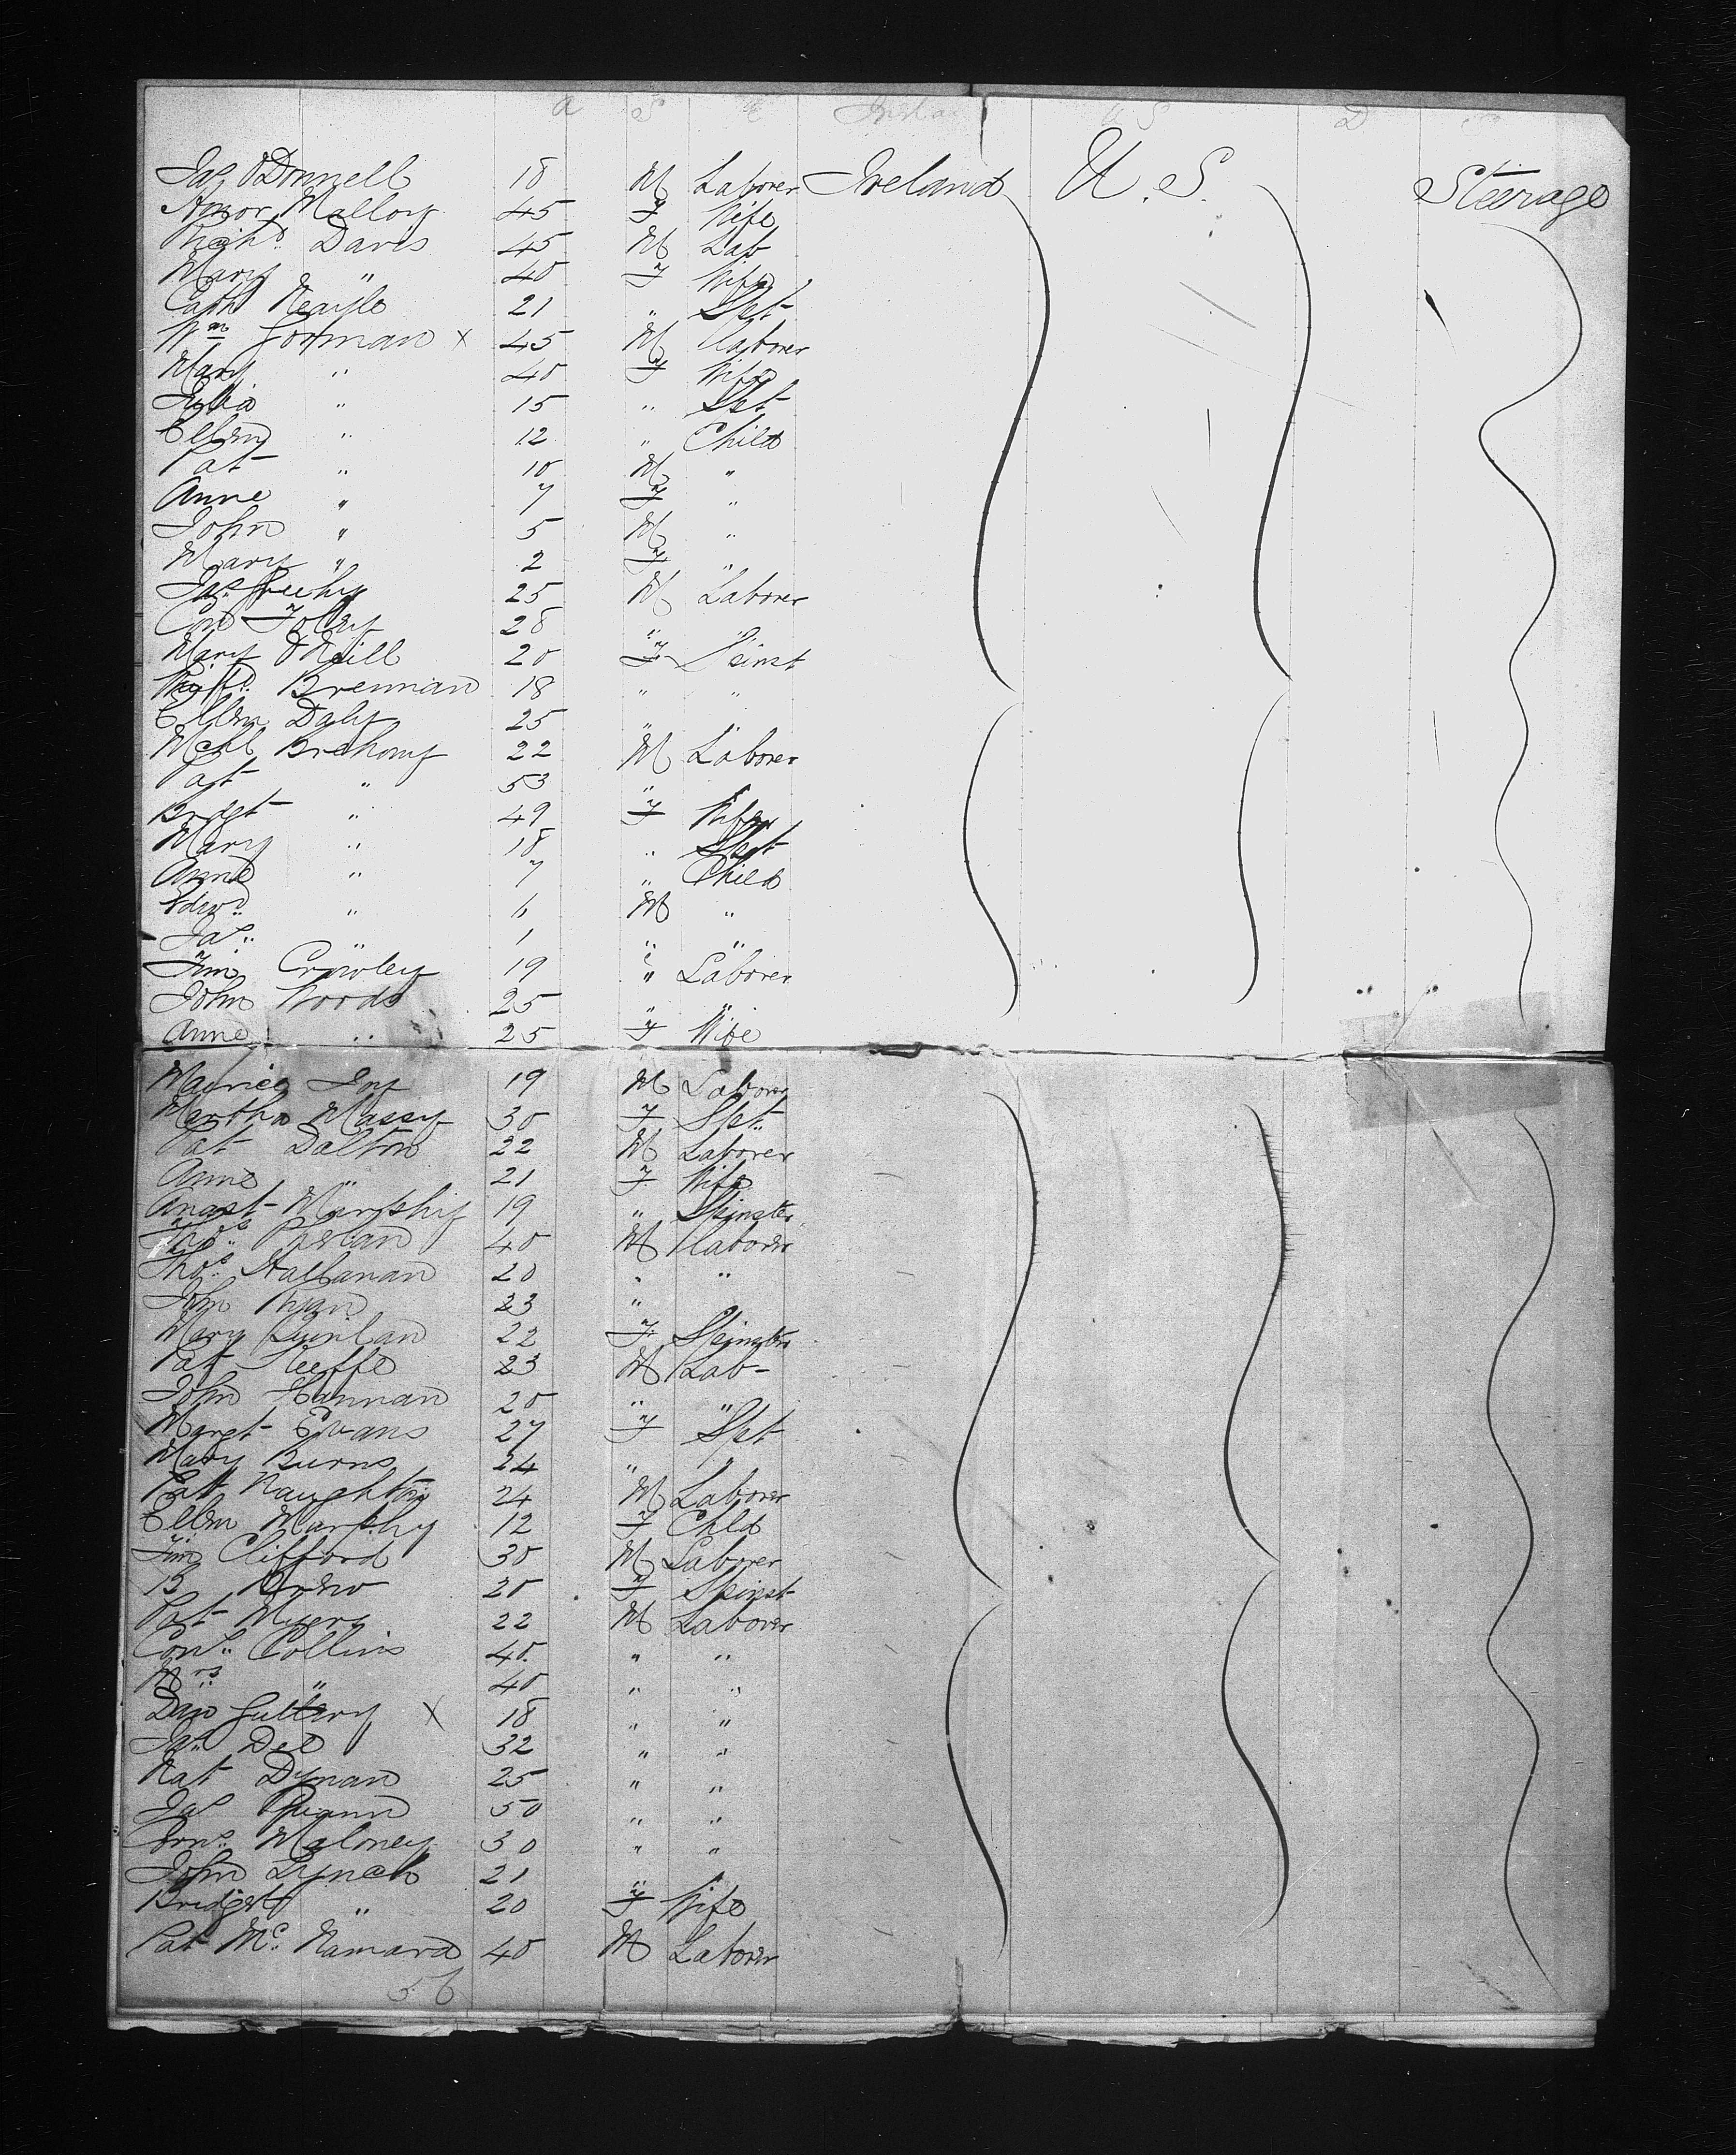 Jas O'Donnell 18 M Laborer Ireland U.S. Steerage
Malloy 45 F Wife
Richd. Davis 45 M Lab
Mary " 40 F Wife
Cath 21 " Spt
Wm Gorman x 45 M Laborer
Mary " 40 F Wife
Julia " 15 " Spt
Ellen " 12 " Child
Pat " 10 M "
Anne " 7 F "
John " 5 M "
Mary " 2 F "
Jas. 25 M Laborer
Con Foley 28 " "
Mary O'Neill 20 F Spinst
Brennan 18 " "
Ellen Daly 25 " "
Mchl Brehony 22 M Laborer
Pat " 53 " "
Bridgt " 49 F Wife
Mary " 18 " Spt
Anne " 7 " Child
Edwd. " 6 M "
Jas. " 1 " "
Tim Crowley 19 " Laborer
John Woods 25 " "
Anne " 25 F Wife
Maurice Joy 19 M Laborer
Martha Massy 30 F Spt.
Pat Dalton 22 M Laborer
Anne " 21 F Wife
Anast Murphy 19 " Spinster
Phelan 40 M Laborer
Thos. Hallanan 20 " "
John Ryan 23 " "
Mary Quinlan 22 F Spinster
Pat Keeffe 23 M Lab-
John Hannan 20 " "
Margt Evans 27 F Spt
Mary Burns 24 " "
Pat Naughton 24 M Laborer
Ellen Murphy 12 F Chld
Tim Clifford 30 M Laborer
B 20 F Spinst
Pat Myers 22 M Laborer
Cons. Collins 40 " "
Mrs " 40 " "
Dan x 18 " "
Jas. Dee 32 " "
Pat Dynan 25 " "
Jas 50 " "
Maloney 30 " "
John Lynch 21 " "
Bridget " 20 F Wife
Pat Mc. Namara 40 M Laborer
56